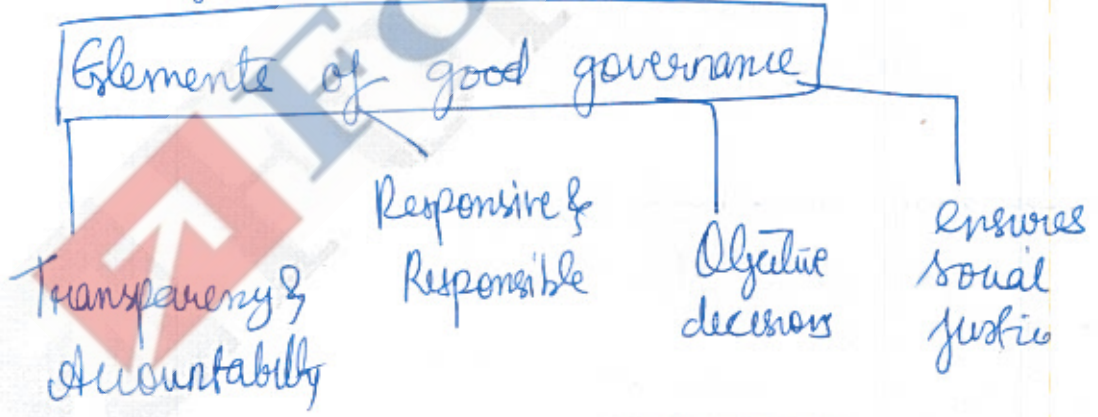 Elements of good governance
Transparency &
Accountability
Responsive &
Responsible
Objective
decisions
ensures
social
justice